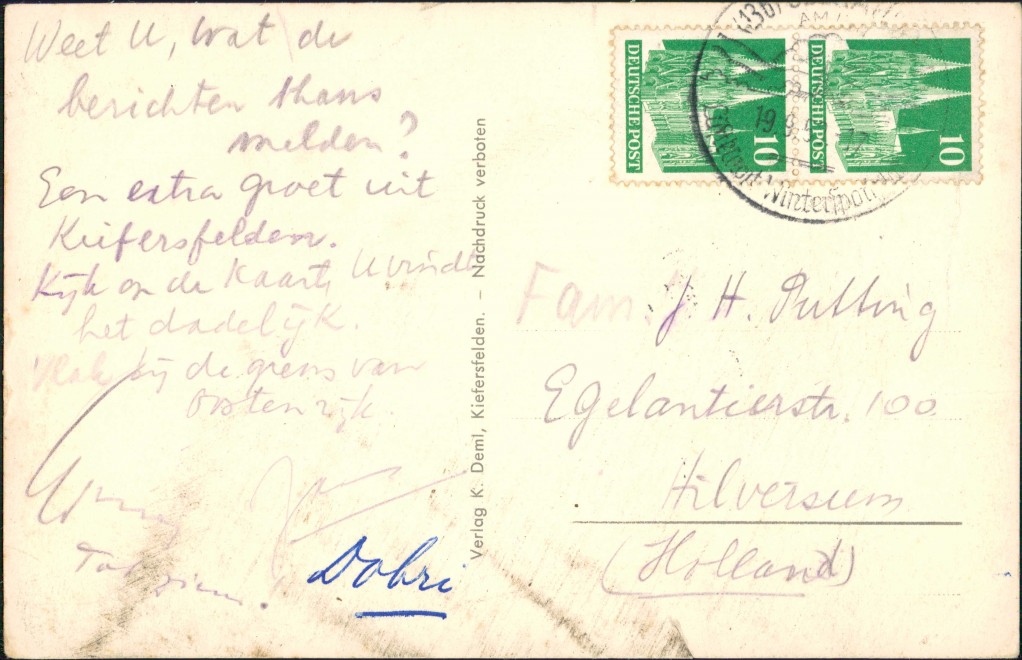 Weet U, wat de
berichten thans
melden?
Een extra groet uit
Kiefersfelden.
Kijk op de kaart, U vindt
het dadelijk.
Vlak bij de grens van
Oostenrijk.
Tot ziens.
Dobri
Verlag K. Deml, Kiefersfelden. – Nachdruck verboten
DEUTSCHE POST
10
DEUTSCHE POST
10
(13b)
AM
19.9.5
Wintersport
Fam. J. H. Putting
Egelantierstr. 100
Hilversum
(Holland)